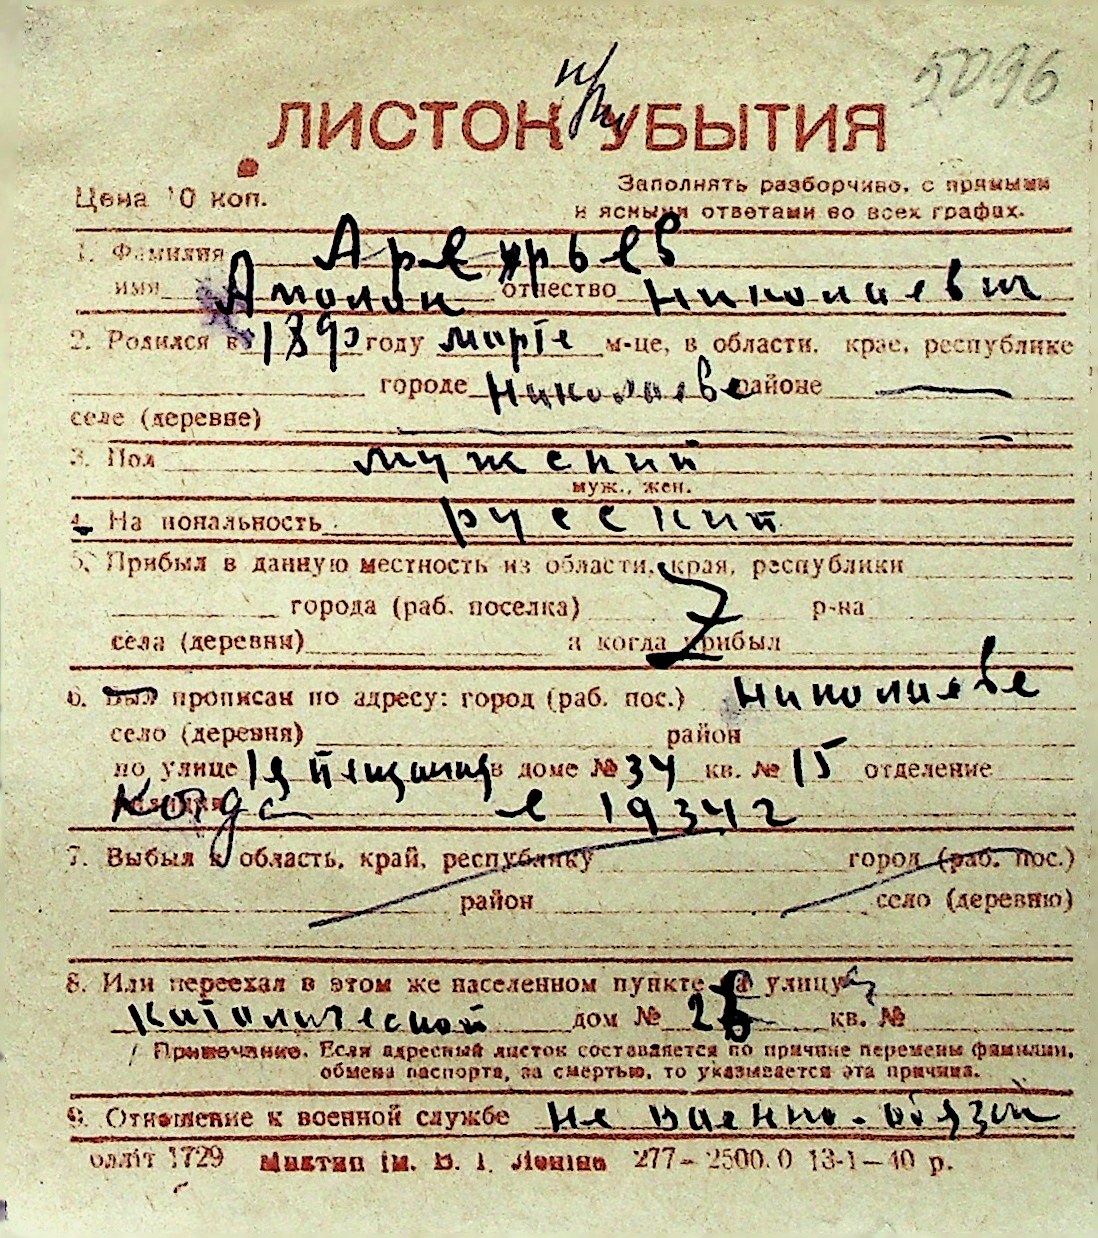 5096
ЛИСТОК УБЫТИЯ
Цена 10 коп.
Заполнять разборчиво, с прямыми
и ясными ответами во всех графах.
1. Фамилия
имя отчество Николаевич
2. Родился в 1890 году марте м-це, в области, крае, республике
городе Николаеве районе —
селе (деревне) —
3. Пол мужский
муж., жен.
4. Национальность русский
5. Прибыл в данную местность из области, края, республики
города (раб. поселка) р-на
села (деревни) и когда прибыл
6. Был прописан по адресу: город (раб. пос.) Николаеве
село (деревня) район
по улице 1я в доме № 34 кв. № 15 отделение
Когда с 1934 г
7. Выбыл в область, край, республику город (раб. пос.)
район село (деревню)
8. Или переехал в этом же населенном пункте на улицу
Католической дом № 26 кв. №
Примечание. Если адресный листок составляется по причине перемены фамилии,
обмена паспорта, за смертью, то указывается эта причина.
9. Отношение к военной службе не военно-обязан
олліт 1729 277—2500.0 13-1—40 р.